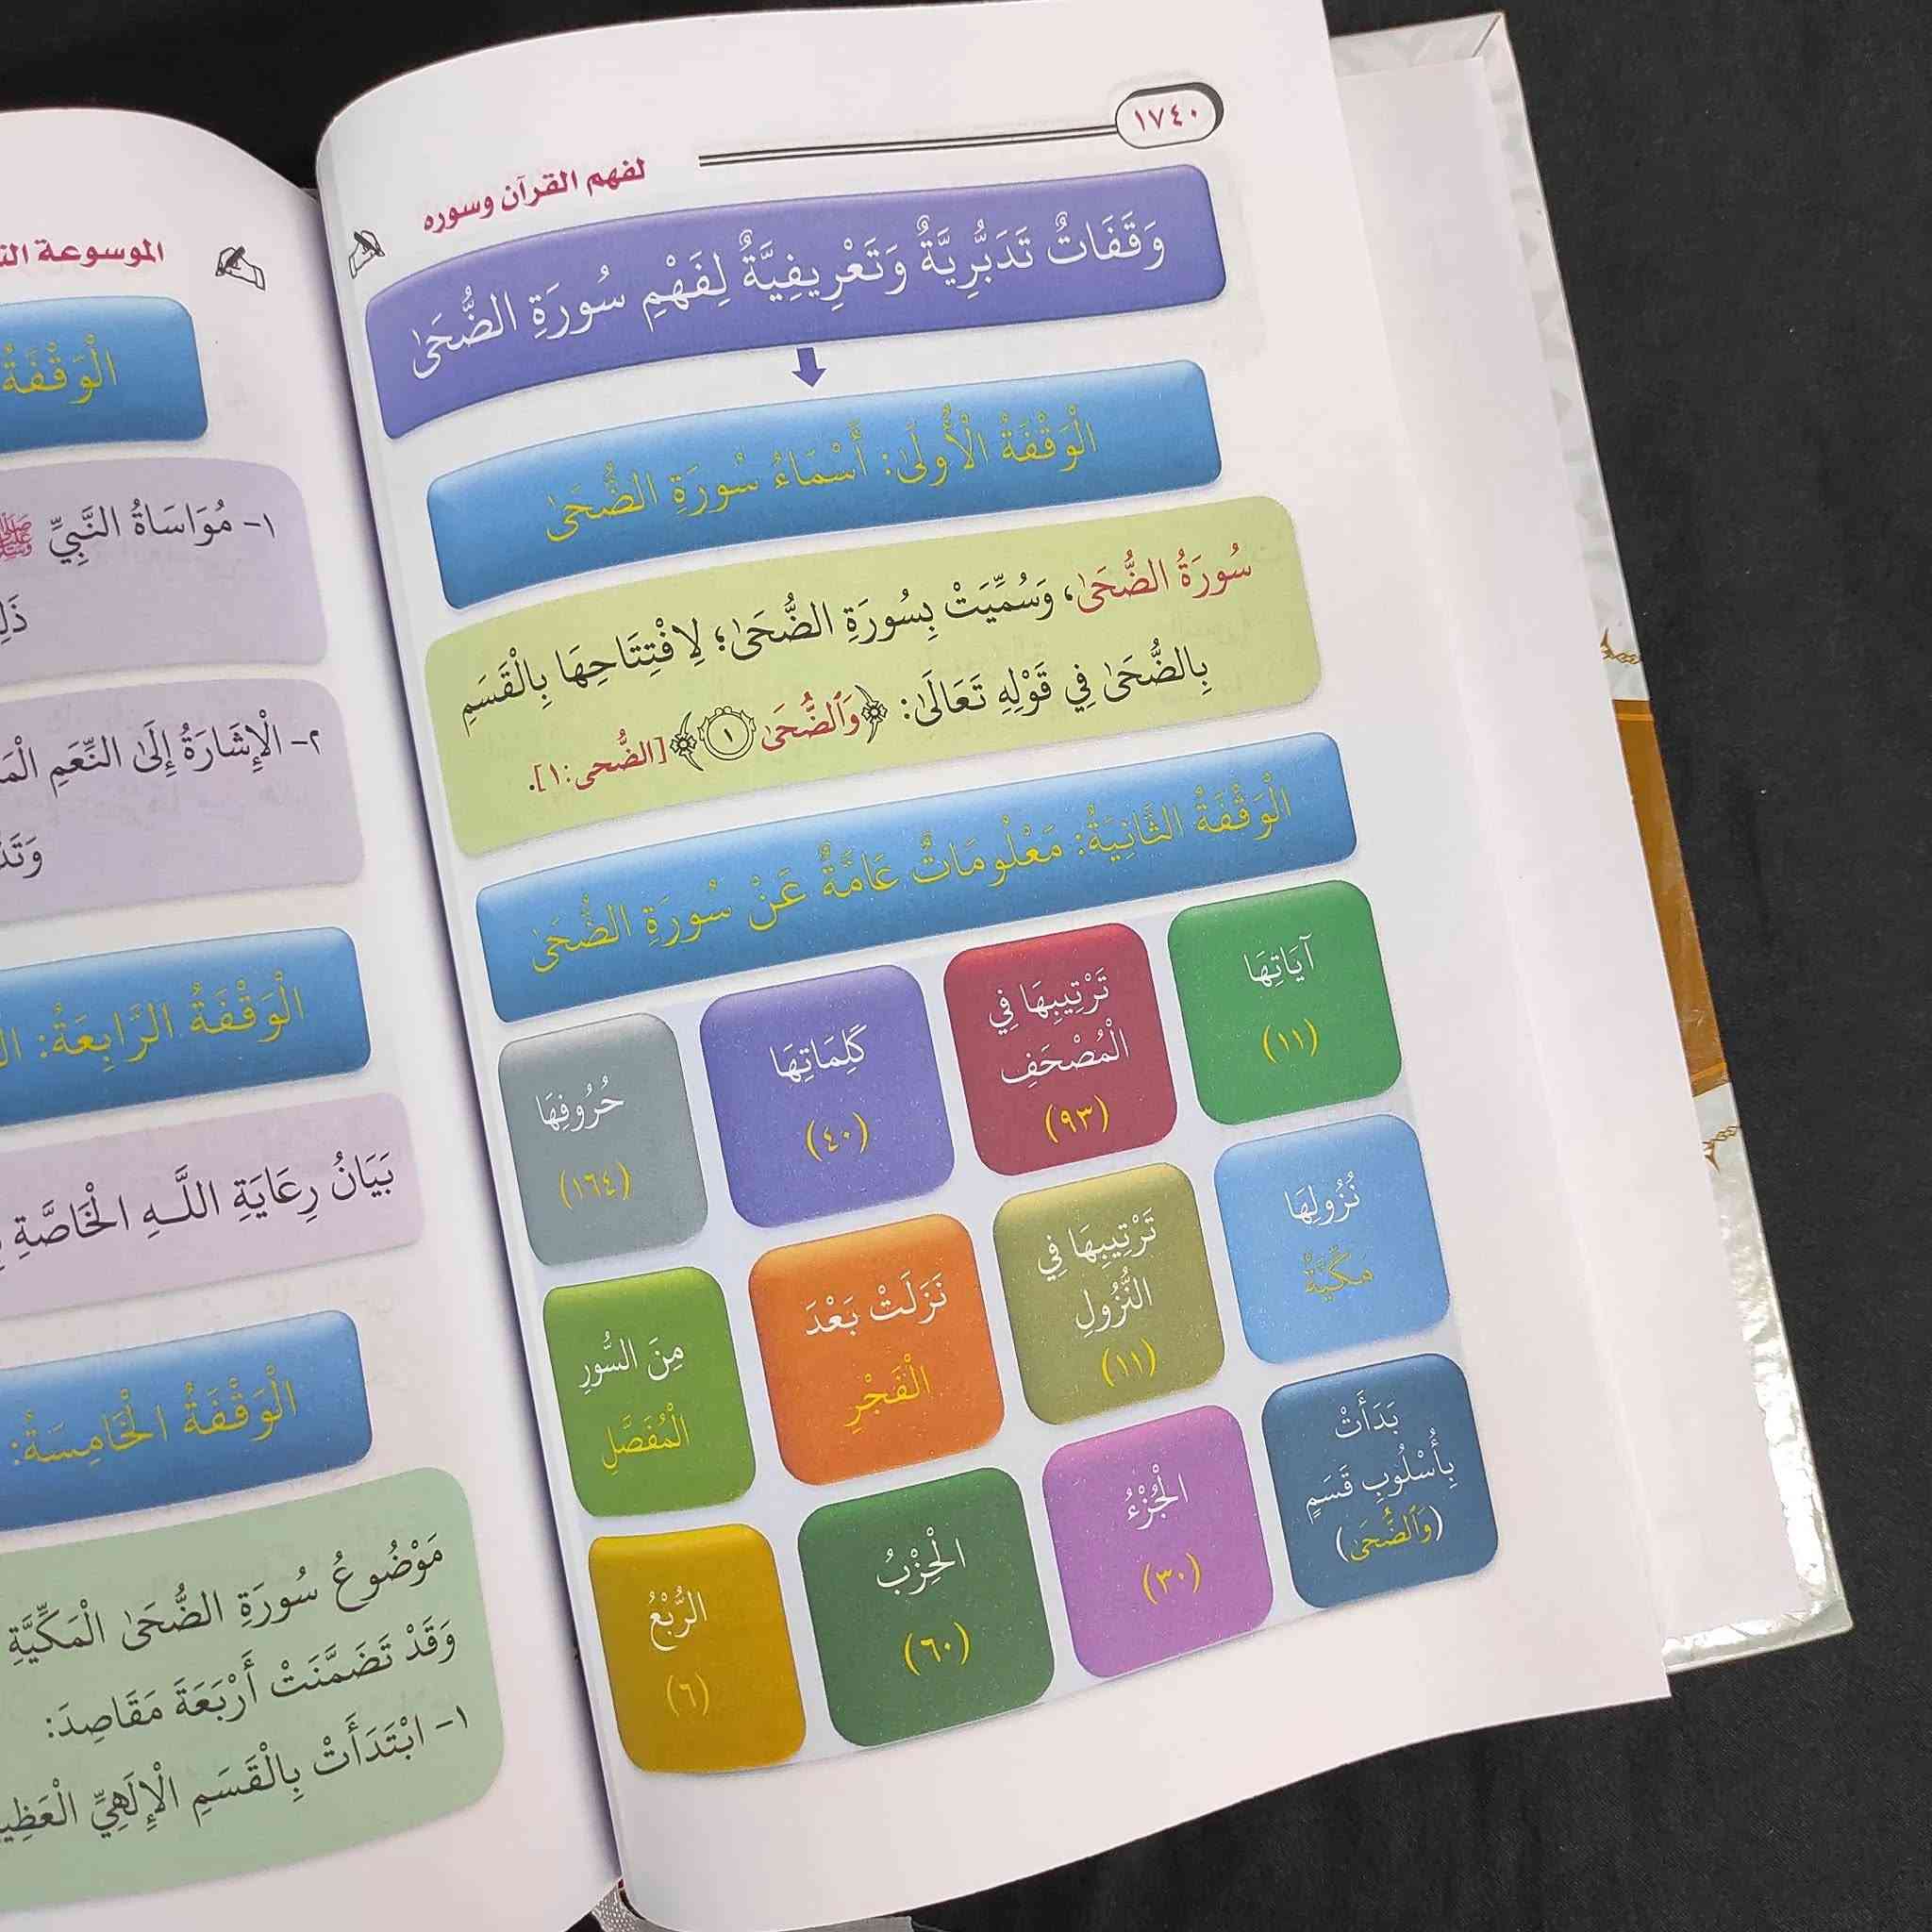 ١٧٤٠
لفهم القرآن وسوره
وَقَفَاتٌ تَدَبُّرِيَّةٌ وَتَعْرِيفِيَّةٌ لِفَهْمِ سُورَةِ الضُّحَىٰ
الْوَقْفَةُ الْأُولَىٰ: أَسْمَاءُ سُورَةِ الضُّحَىٰ
سُورَةُ الضُّحَىٰ، وَسُمِّيَتْ بِسُورَةِ الضُّحَىٰ؛ لِافْتِتَاحِهَا بِالْقَسَمِ
بِالضُّحَىٰ فِي قَوْلِهِ تَعَالَىٰ: ﴿وَٱلضُّحَىٰ ١﴾ [الضُّحى:١].
الْوَقْفَةُ الثَّانِيَةُ: مَعْلُومَاتٌ عَامَّةٌ عَنْ سُورَةِ الضُّحَىٰ
آيَاتِهَا
(١١)
تَرْتِيبِهَا فِي
الْمُصْحَفِ
(٩٣)
كَلِمَاتِهَا
(٤٠)
حُرُوفِهَا
(١٦٤)
نُزُولِهَا
مَكِّيَّةٌ
تَرْتِيبِهَا فِي
النُّزُولِ
(١١)
نَزَلَتْ بَعْدَ
الْفَجْرِ
مِنَ السُّوَرِ
الْمُفَصَّلِ
بَدَأَتْ
بِأُسْلُوبِ قَسَمٍ
(وَٱلضُّحَىٰ)
الْجُزْءُ
(٣٠)
الْحِزْبُ
(٦٠)
الرُّبْعُ
(٦)
الموسوعة
الْوَقْفَةُ
١- مُوَاسَاةُ النَّبِيِّ ﷺ
٢- الْإِشَارَةُ إِلَىٰ النِّعَمِ
الْوَقْفَةُ الرَّابِعَةُ:
بَيَانُ رِعَايَةِ اللَّـهِ الْخَاصَّةِ
الْوَقْفَةُ الْخَامِسَةُ:
مَوْضُوعُ سُورَةِ الضُّحَىٰ الْمَكِّيَّةِ
وَقَدْ تَضَمَّنَتْ أَرْبَعَةَ مَقَاصِدَ:
١- ابْتَدَأَتْ بِالْقَسَمِ الْإِلَهِيِّ